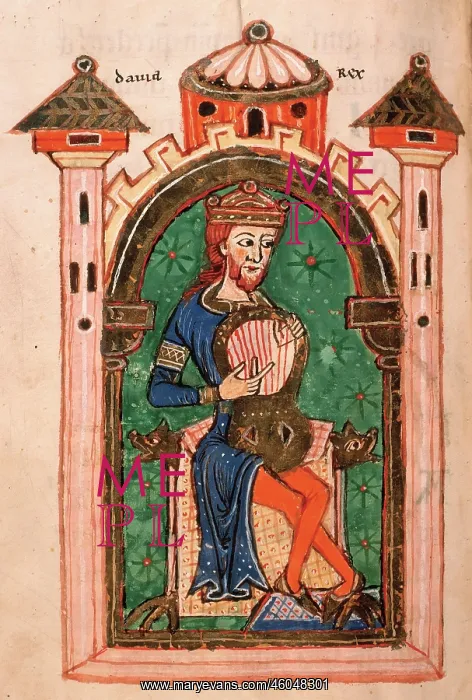 david Rex
ME
PL
ME
PL
www.maryevans.com/46048301